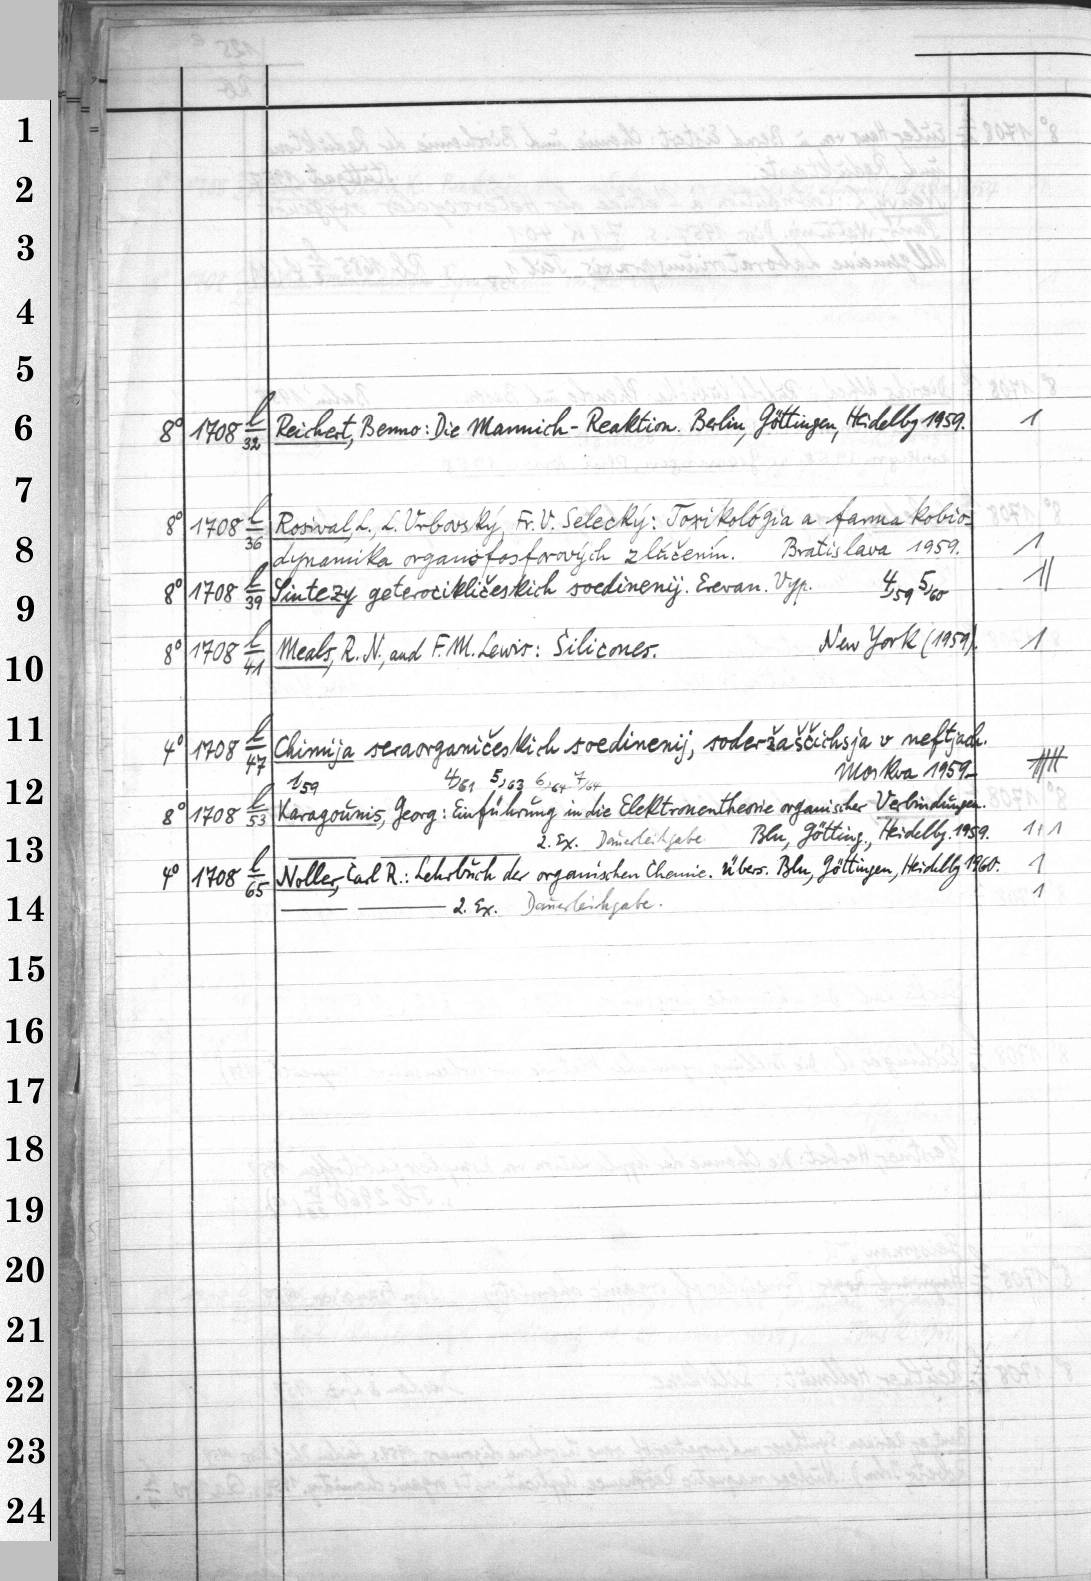 1
2
3
4
5
6
7
8
9
10
11
12
13
14
15
16
17
18
19
20
21
22
23
24
8° 1708 l/32 Reichert, Benno: Die Mannich-Reaktion. Berlin, Göttingen, Heidelbg 1959. 1
8° 1708 l/36 Rosival, L., L. Vrbovský, Fr. V. Selecký: Toxikológia a farmakobio-
dynamika organofosforových zlúčenín. Bratislava 1959. 1
8° 1708 l/39 Sintezy geterocikličeskich soedinenij. Erevan. Vyp. 4,59 5,60 11
8° 1708 l/41 Meals, R. N., and F. M. Lewis: Silicones. New York (1959). 1
4° 1708 l/47 Chimija seraorganičeskich soedinenij, soderžaščichsja v neftjach.
Moskva 1959–
1,59 4,61 5,63 6,64 7,64
8° 1708 l/53 Karagounis, Georg: Einführung in die Elektronentheorie organischer Verbindungen.
2. Ex. Dauerleihgabe Bln, Götting., Heidelbg. 1959. 1+1
4° 1708 l/65 Noller, Carl R.: Lehrbuch der organischen Chemie. Übers. Bln, Göttingen, Heidelbg 1960. 1
— — 2. Ex. Dauerleihgabe. 1